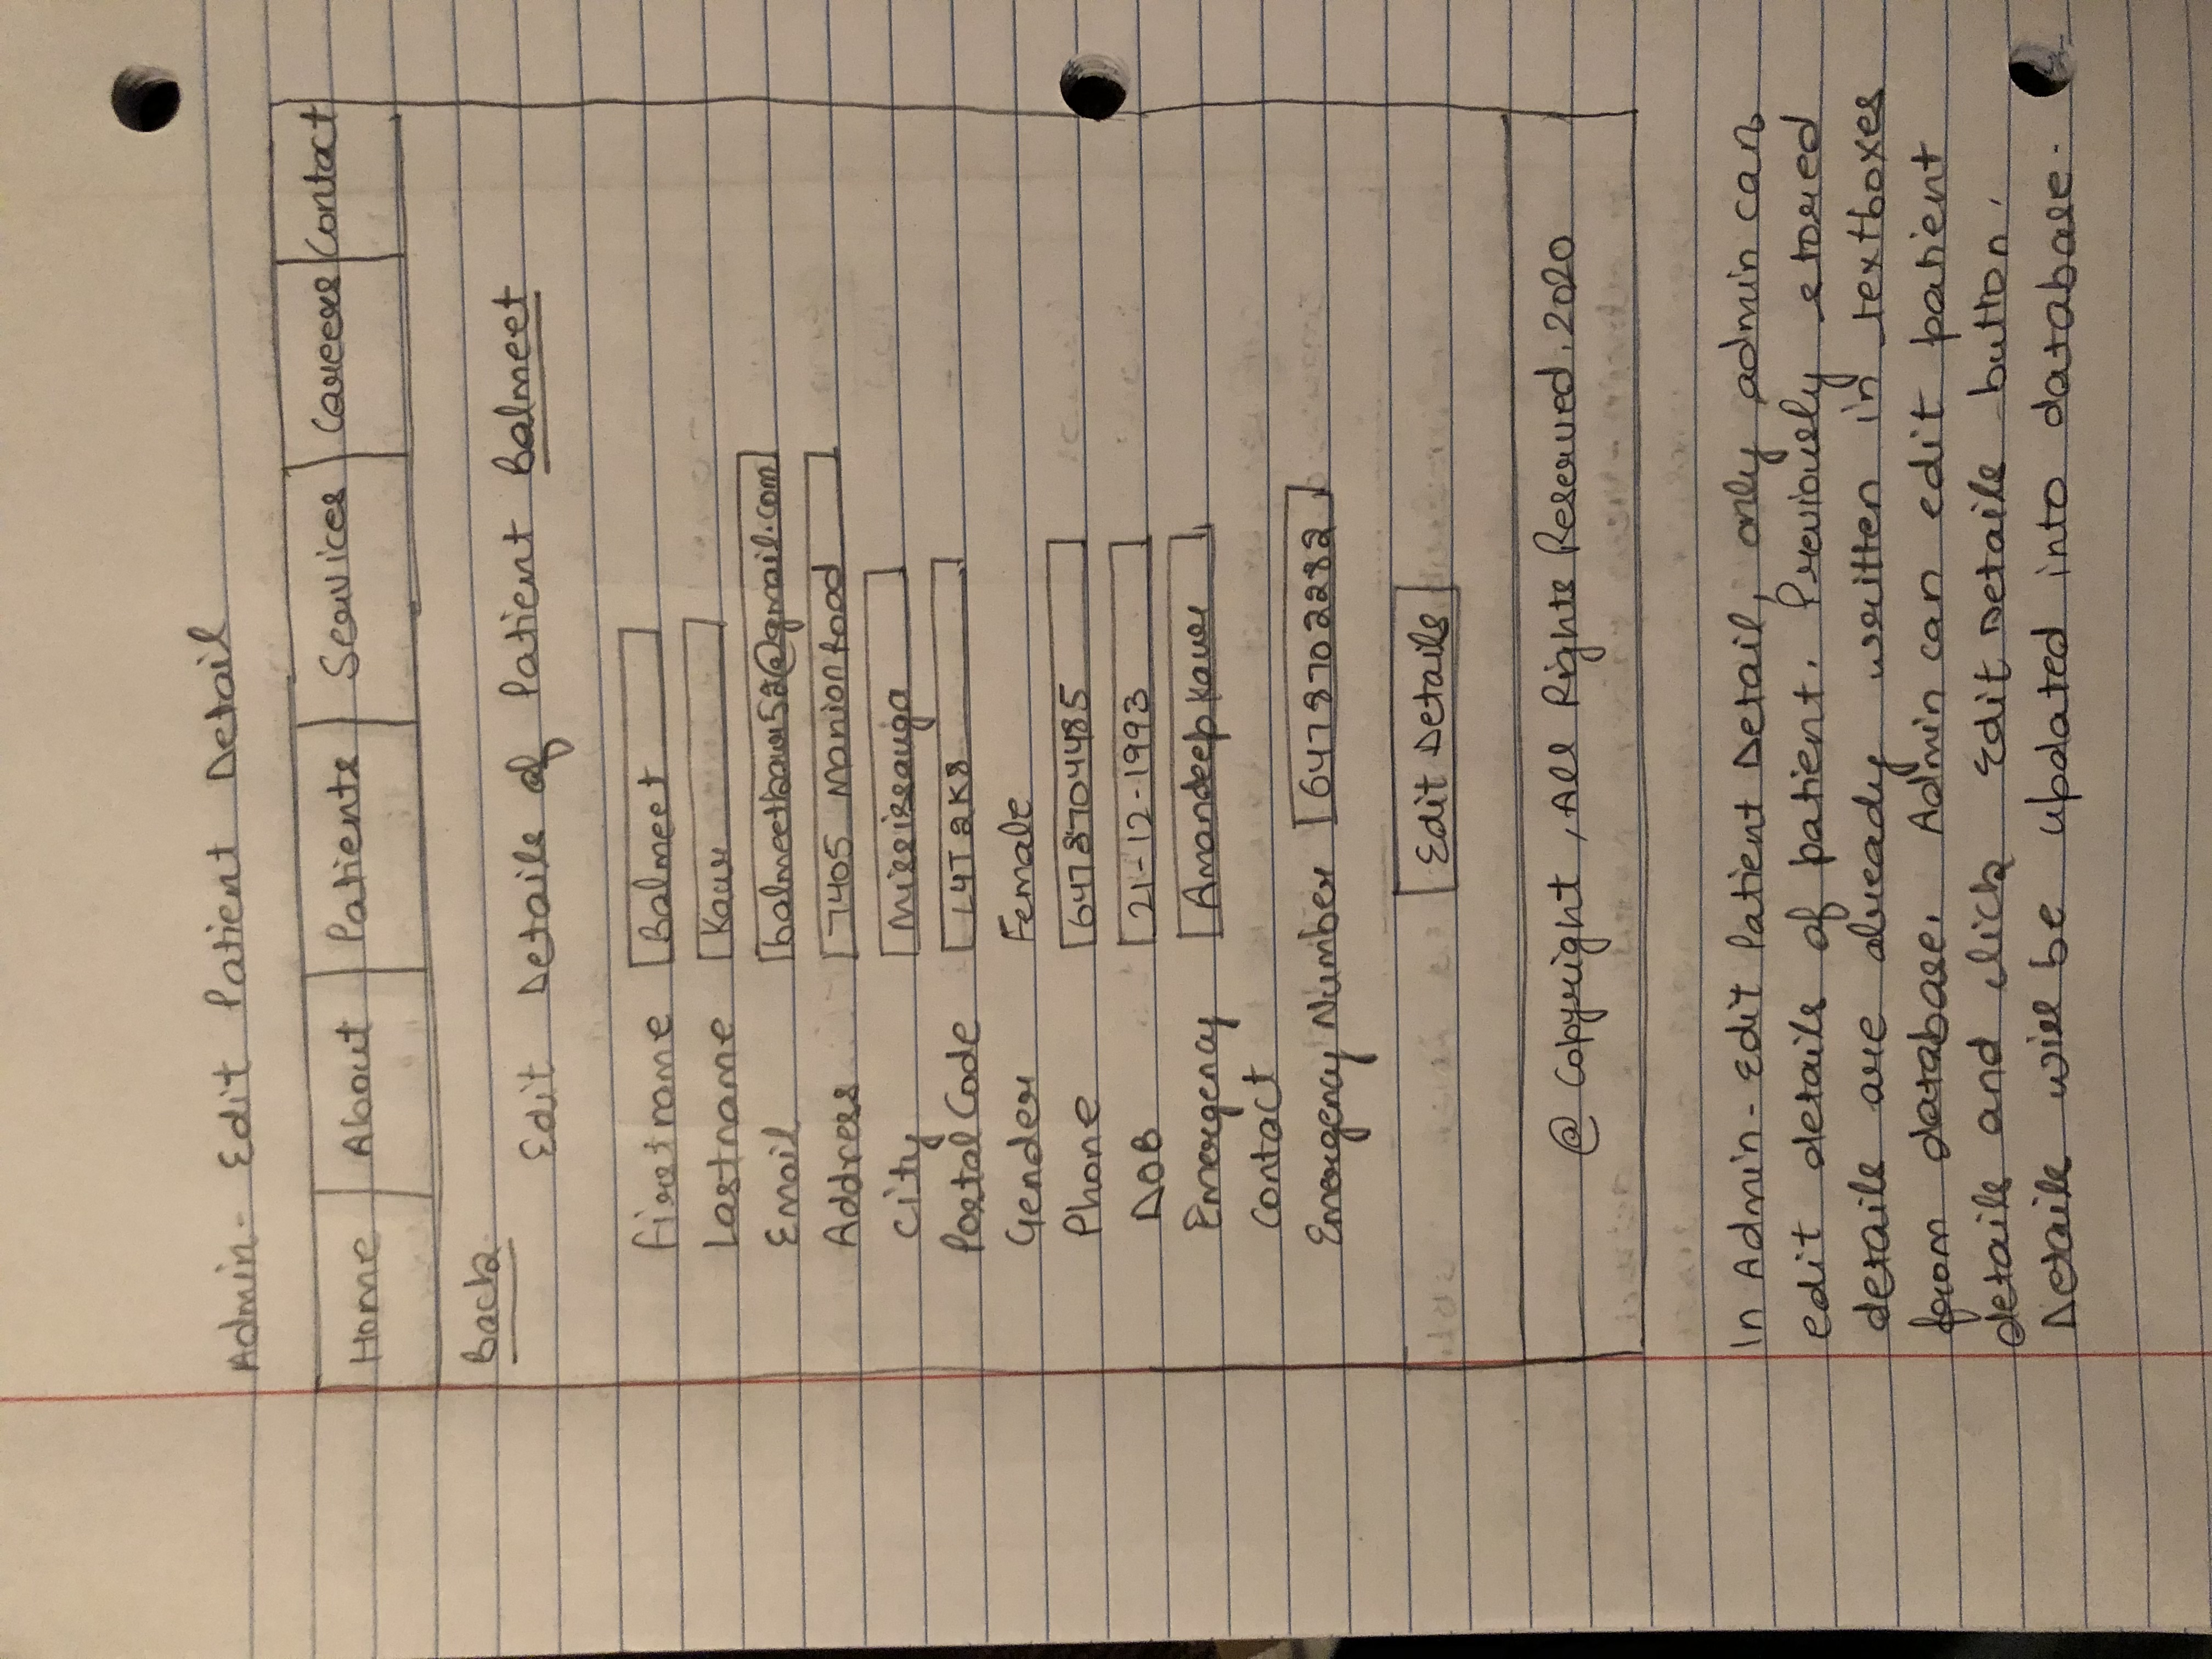 Admin- Edit Patient Detail
Home About Patients Services Careers Contact
Back
Edit Details of Patient Balmeet
Firstname Balmeet
Lastname Kaur
Email balmeetkaur52@gmail.com
Address 7405 Manion Road
City Mississauga
Postal Code L4T2K8
Gender Female
Phone 6478704485
DOB 21-12-1993
Emergency Amandeep Kaur
Contact
Emergency Number 6478702282
Edit Details
@ Copyright, All Rights Reserved. 2020
In Admin- Edit Patient Detail, only admin can
edit details of patient. Previously stored
details are already written in textboxes
from database. Admin can edit patient
details and click Edit Details button.
Details will be updated into database.